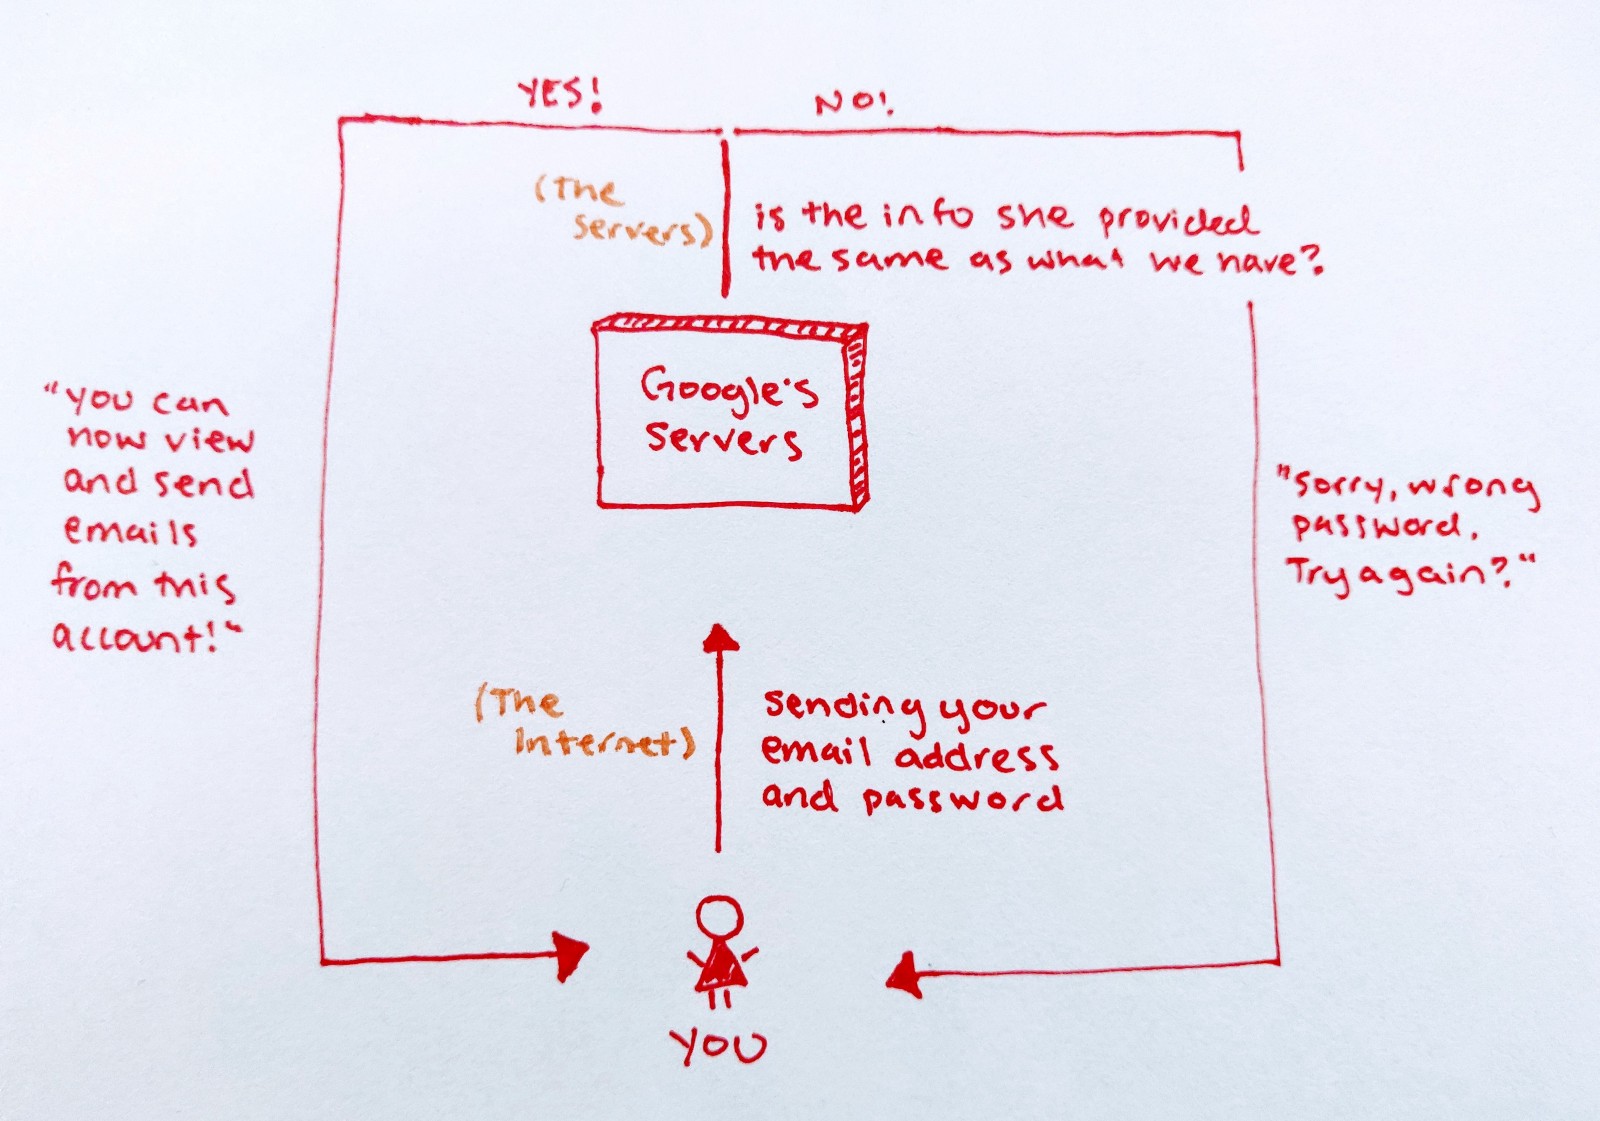 YES!
NO!
(The
servers)
is the info she provided
the same as what we have?
Google's
servers
"you can
now view
and send
emails
from this
account!"
"Sorry, wrong
password.
Try again?"
(The
Internet)
sending your
email address
and password
YOU